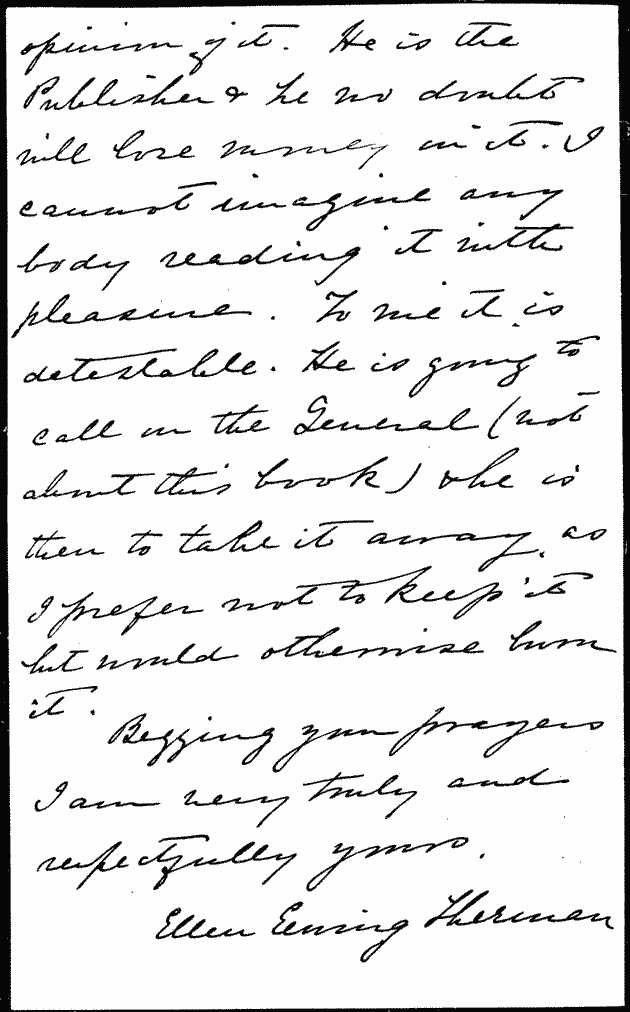 opinion of it. He is the
Publisher & he no doubt
will lose money on it. I
cannot imagine any
body reading it with
pleasure. To me it is
detestable. He is going to
call on the General (not
about this book) & he is
then to take it away, as
I prefer not to keep it
but would otherwise burn
it.
Begging your prayers
I am very truly and
respectfully yours,
Ellen Ewing Sherman